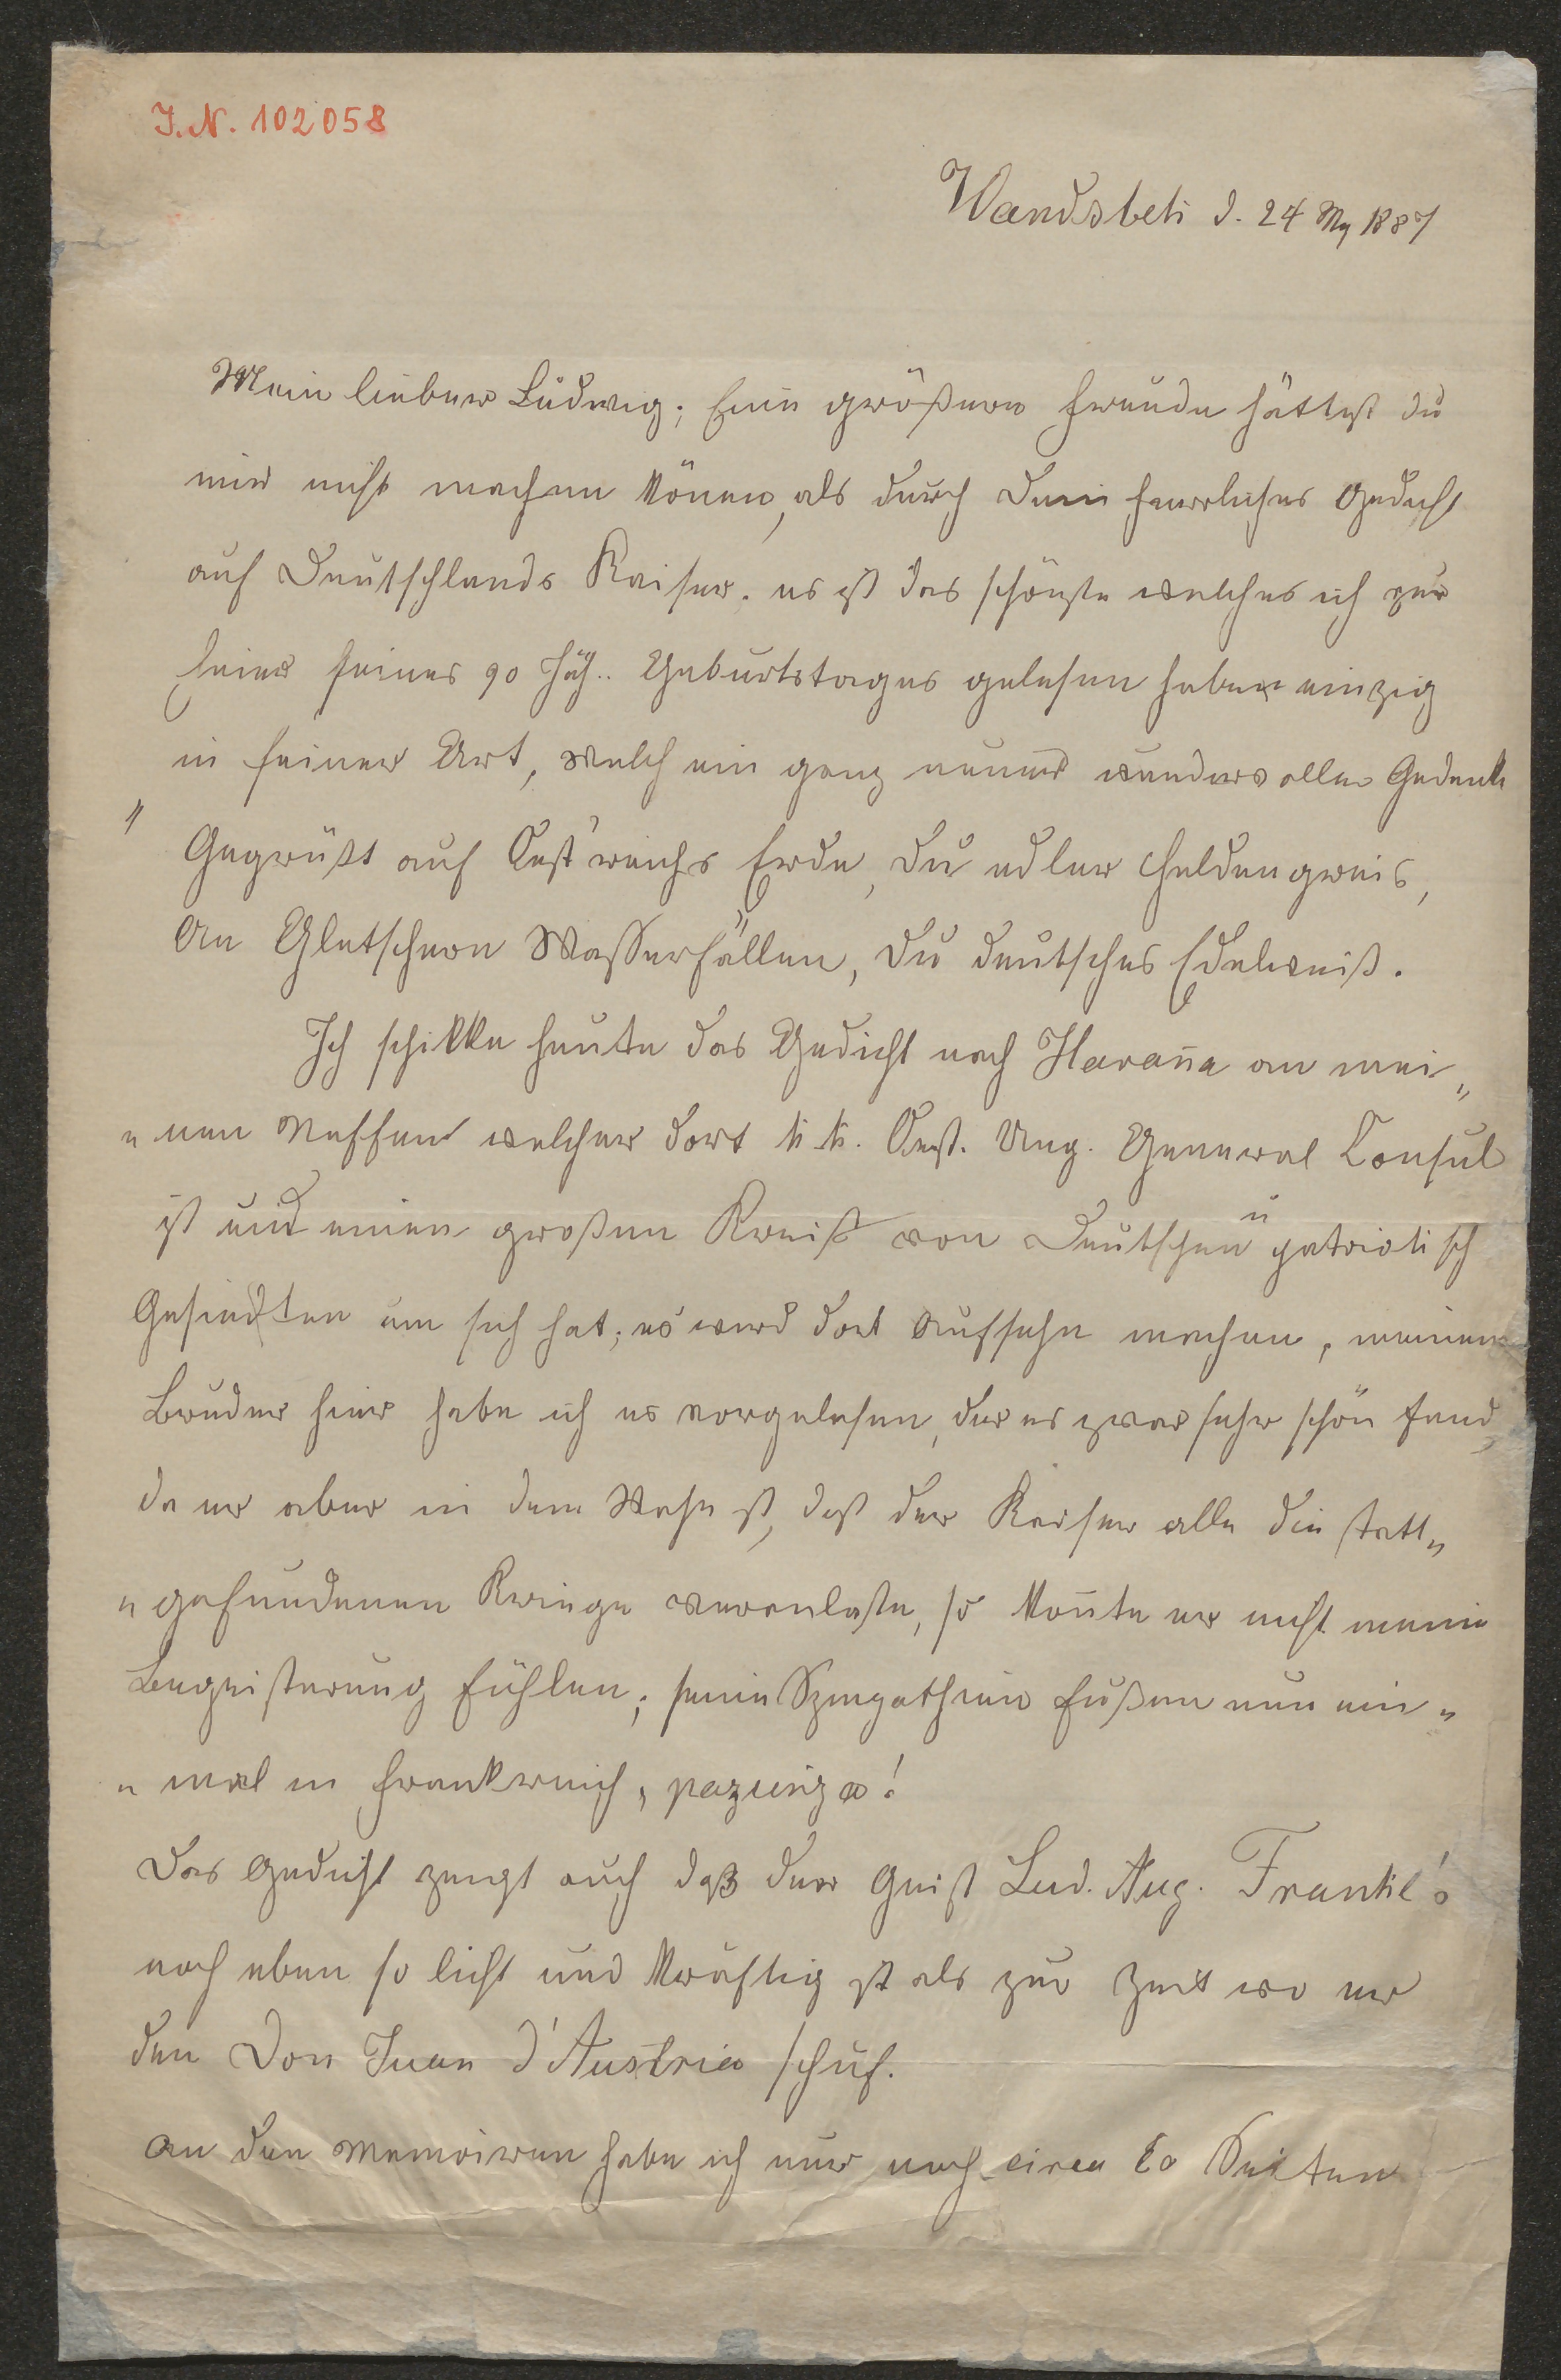 I.N. 102058
Wandsbek d. 24 My 1887
Mein lieber Ludwig; Eine größere Freude hättest du
mir nicht machen könen, als durch Dein herrliches Gedicht
auf Deutschlands Kaiser. es ist das schönste welches ich zur
Feier seines 90 Jäh.. Geburtstages gelesen habe einzig
in seiner Art, welch ein ganz neuer wundervoller Gedank
" Gegrüßt auf Oest'reichs Erde, Du edler Heldengreis,
An Gletschern Wasserfällen, Du deutsches Edelweiß.
Ich schikke heute das Gedicht nach Havana an mei„
„nen Neffen welcher dort k. k. Oest. Ung. General Consul
ist und einen großen Kreiß von Deutschen u patriotisch
Gesindten um sich hat; es wird dort Aufsehn machen, meinem
Bruder hier habe ich es vorgelesen, der es zwar sehr schön fand,
da er aber in dem Wahn ist, daß der Kaiser alle die statt„
„gefundenen Kriege veranlaste, so konte er nicht meine
Begeisterung fühlen; seine Sympathien fußen nun ein„
„mal in Frankreich,
Das Gedicht zeugt auch daß der Geist Lud. Aug. Frankl's
noch eben so licht und kräftig ist als zur Zeit wo er
den Don Juan d'Austria schuf.
An den Memoiren habe ich nur noch circa 20 Seiten